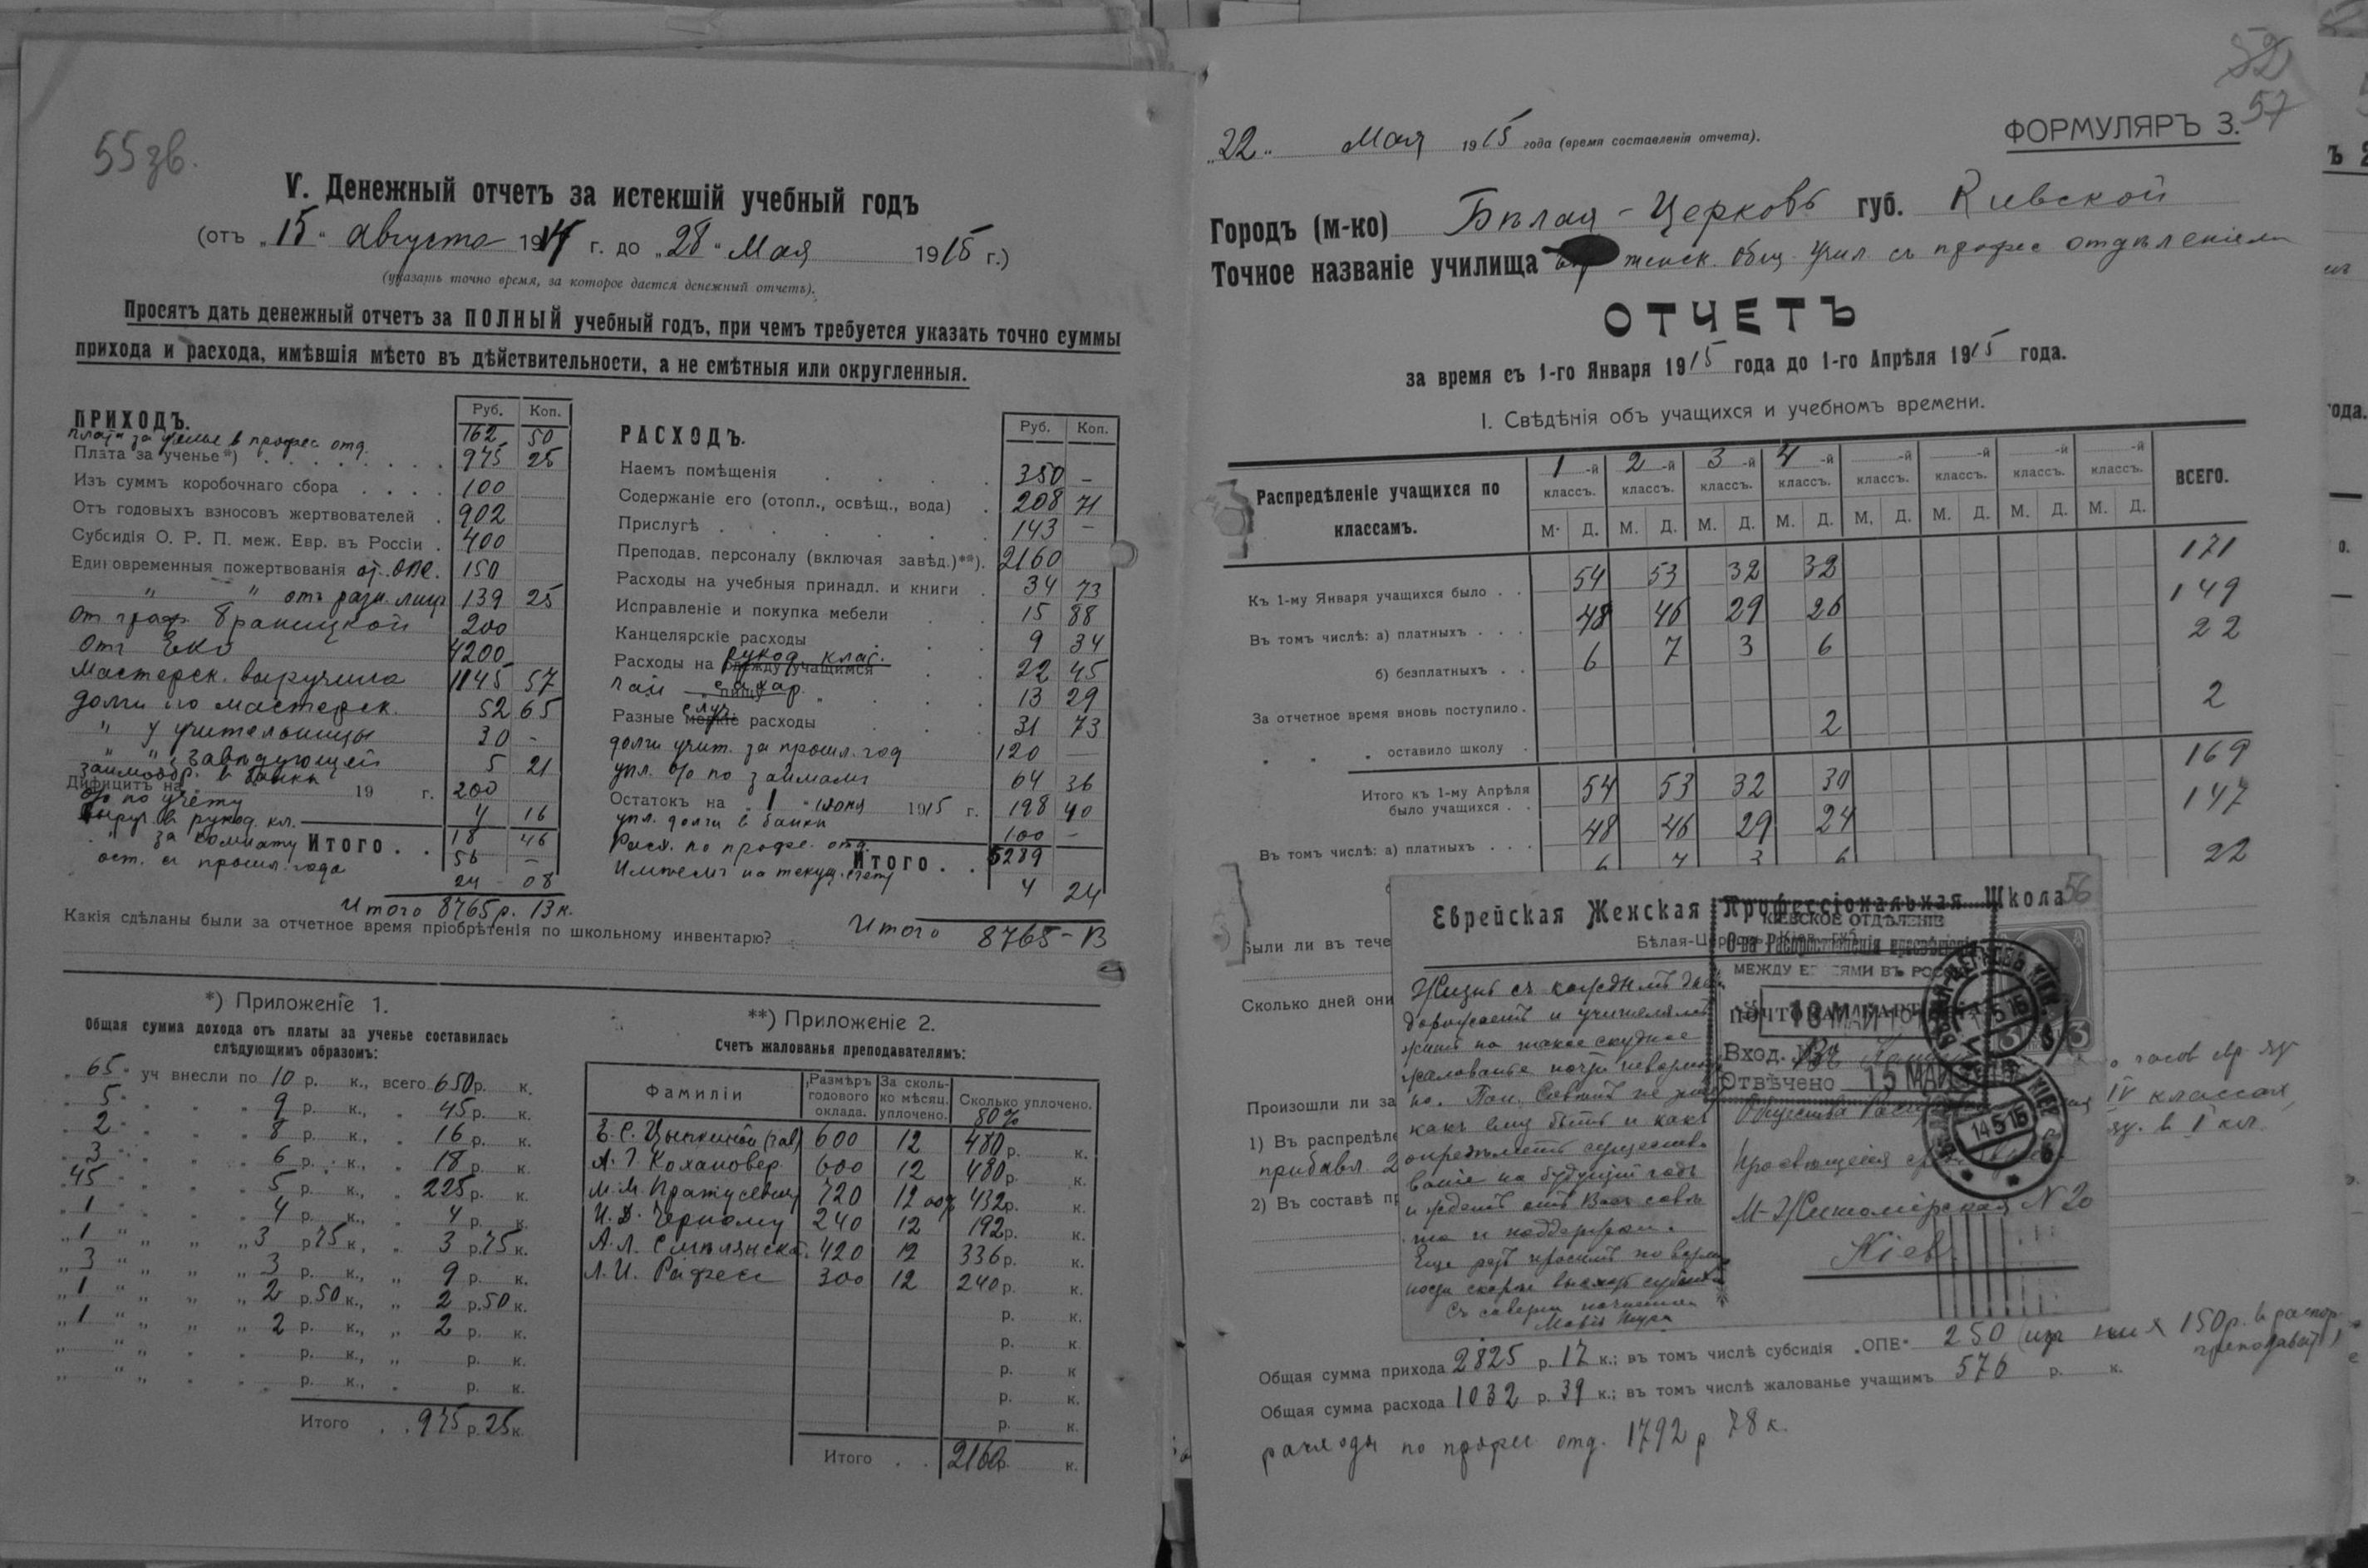 55 зв.
V. Денежный отчетъ за истекшій учебный годъ
(отъ „15" августа 1914 г. до „28" Мая 1915 г.)
(указать точно время, за которое дается денежный отчетъ).
Просятъ дать денежный отчетъ за ПОЛНЫЙ учебный годъ, при чемъ требуется указать точно суммы
прихода и расхода, имѣвшія мѣсто въ дѣйствительности, а не смѣтныя или округленныя.
ПРИХОДЪ. Руб. Коп.
плата за ученье в профес отд. 162 50
Плата за ученье*) 975 25
Изъ суммъ коробочнаго сбора 100
Отъ годовыхъ взносовъ жертвователей 902
Субсидія О. Р. П. меж. Евр. въ Россіи 400
Единовременныя пожертвованія от ОПЕ. 150
" " отъ разн. лицъ 139 25
от граф. Браницкой 200
отъ Еко 4200
Мастерск. выручила 1145 57
долги по мастерск. 52 65
" у учительницы 30 -
" " завѣдующей 5 21
заимообр. в банкѣ
Дифицитъ на 19 г. 200
% по учету 4 16
выруч. в рукод. кл. 18 46
" за комнату Итого 56 -
ост. съ прошл. года 24 08
Итого 8765 р. 13 к.
РАСХОДЪ. Руб. Коп.
Наемъ помѣщенія 350 -
Содержаніе его (отопл., освѣщ., вода) 208 71
Прислугѣ 143 -
Преподав. персоналу (включая завѣд.)**). 2160
Расходы на учебныя принадл. и книги 34 73
Исправленіе и покупка мебели 15 88
Канцелярскіе расходы 9 34
Расходы на одежду учащимся рукод. клас. 22 45
чай пищу сахар. 13 29
Разные мелкіе случ. расходы 31 73
долги учит. за прошл. год 120 —
упл. % по займамъ 64 36
Остатокъ на „1" іюня 1915 г. 198 40
упл. долги в банки 100 -
Расх. по профе. отд. Итого 5289
Имѣемъ на текущ. счету 4 24
Итого 8765 - 13
Какія сдѣланы были за отчетное время пріобрѣтенія по школьному инвентарю?
*) Приложеніе 1.
Общая сумма дохода отъ платы за ученье составилась
слѣдующимъ образомъ:
„65" уч внесли по 10 р. к., всего 650 р. к.
„5" „ „ „ 9 р. к., „ 45 р. к.
„2" „ „ „ 8 р. к., „ 16 р. к.
„3" „ „ „ 6 р. к., „ 18 р. к.
„45" „ „ „ 5 р. к., „ 225 р. к.
„1" „ „ „ 4 р. к., „ 4 р. к.
„1" „ „ „ 3 р. 75 к., „ 3 р. 75 к.
„3" „ „ „ 3 р. к., „ 9 р. к.
„1" „ „ „ 2 р. 50 к., „ 2 р. 50 к.
„1" „ „ „ 2 р. к., „ 2 р. к.
„ " „ „ „ р. к., „ р. к.
„ " „ „ „ р. к., „ р. к.
Итого 975 р. 25 к.
**) Приложеніе 2.
Счетъ жалованья преподавателямъ:
Фамиліи Размѣръ годового оклада. За сколько мѣсяц. уплочено. Сколько уплочено. 80%
Б. С. Цыпкиной (зав) 600 12 480 р. к.
А. Г. Кохановер 600 12 480 р. к.
М. М. Пратусевич 720 12 60% 432 р. к.
И. Д. Черному 240 12 192 р. к.
А. Л. Смѣлянска. 420 12 336 р. к.
Л. И. Рафесс 300 12 240 р. к.
р. к.
р. к.
р. к
р. к.
р. к.
Итого 2160 р. к.
52
57
„22" Мая 1915 года (время составленія отчета).
ФОРМУЛЯРЪ 3.
Городъ (м-ко) Бѣлая-Церковь губ. Кіевской
Точное названіе училища женск. общ. учил. съ профес отдѣленіем
ОТЧЕТЪ
за время съ 1-го Января 1915 года до 1-го Апрѣля 1915 года.
I. Свѣдѣнія объ учащихся и учебномъ времени.
Распредѣленіе учащихся по классамъ. 1-й классъ. 2-й классъ. 3-й классъ. 4-й классъ. -й классъ. -й классъ. -й классъ. -й классъ. ВСЕГО.
М. Д. М. Д. М. Д. М. Д. М. Д. М. Д. М. Д. М. Д.
Къ 1-му Января учащихся было 54 53 32 32 171
Въ томъ числѣ: а) платныхъ 48 46 29 26 149
б) безплатныхъ 6 7 3 6 22
За отчетное время вновь поступило
„ „ оставило школу 2 2
Итого къ 1-му Апрѣля было учащихся 54 53 32 30 169
Въ томъ числѣ: а) платныхъ 48 46 29 24 147
6 7 3 6 22
56
Еврейская Женская Профессіональная Школа
Бѣлая-Церковь, Кіев. губ.
КІЕВСКОЕ ОТДѢЛЕНІЕ
О-ва Распространенія просвѣщенія
МЕЖДУ ЕВРЕЯМИ ВЪ РОССІИ
ПОЧТОВАЯ КАРТОЧКА
Вход. №
Отвѣчено 15 МАЙ
14 5 15
Жизнь съ каждымъ днемъ
дорожаетъ и учителямъ
жить на такое скудное
жалованье почти невозмож
но.
какъ ему быть и какъ
опредѣлить существо-
ваніе на будущій годъ
и ждетъ отъ Васъ совѣ
та и поддержки.
Еще разъ просимъ по возмож
ности скорѣе выслать субсидію
Съ соверш. почтеніем
Общества Распр.
просвѣщенія
М-Житомірская N 20
Кіев.
Были ли въ тече
Сколько дней они
Произошли ли за
1) Въ распредѣле
прибавл. 2
2) Въ составѣ пр
часов
IV классах
в I кл.
Общая сумма прихода 2825 р. 17 к.; въ томъ числѣ субсидія „ОПЕ" 250 (из них 150 р. в распор. преподават)
Общая сумма расхода 1032 р. 39 к.; въ томъ числѣ жалованье учащимъ 576 р. к.
расходы по профес отд. 1792 р 78 к.